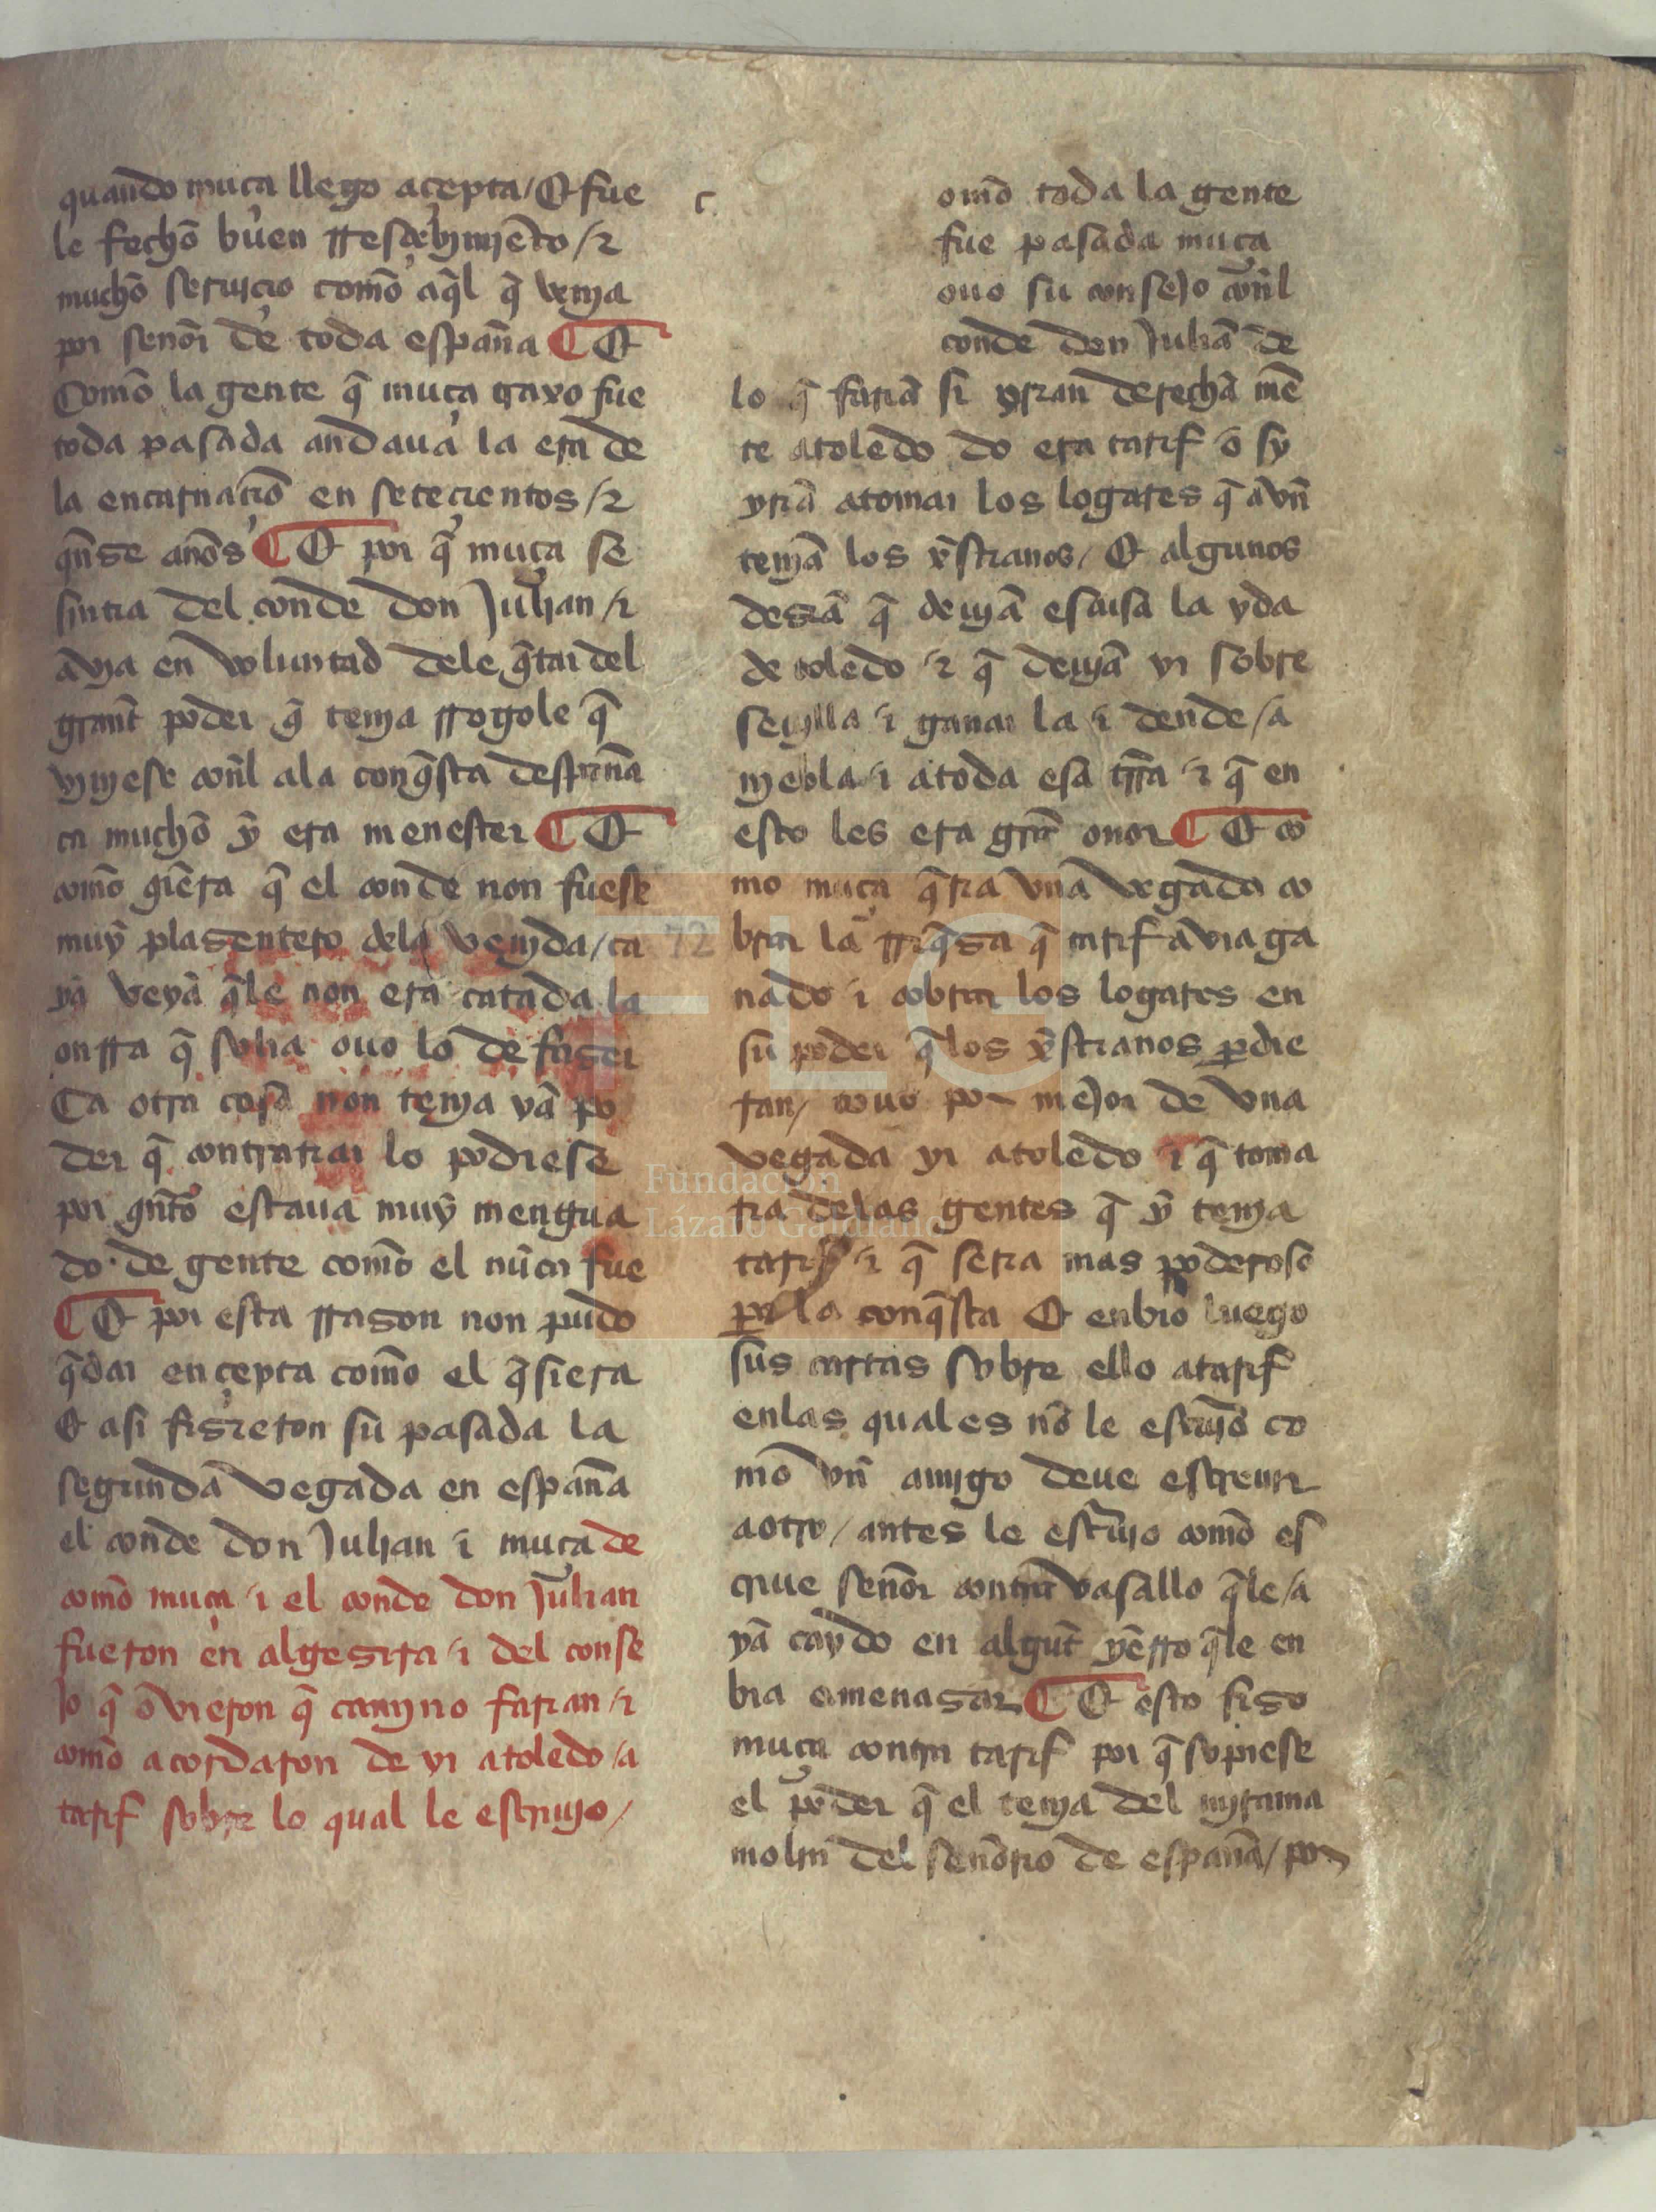 quando muça llego açepta / E fue
le fechō buen rresçebymyēto / τ
muchō seruyçio comō aq̄l q̄ venya
por senōr de toda españa ¶ E
Comō la gente q̄ muça traxo fue
toda pasada andaua la era de
la encarnaciō en setecientos / τ
qn̄se anōs ¶ E por q̄ muça se
sintia del conde don Julian / τ
avia en voluntad dele q̄tar del
grant̄ poder q̄ tenya rrogole q̄
vynyese con̄l ala conq̄sta despana
ca muchō ȳ era menester ¶ E
comō giēra q̄ el conde non fuese
muȳ plasentero dela venyda / ca
yā veyā q̄le non era catada la
onrra q̄ solia ouo lo de faser
Ca otra cosa non tenya yā po
der q̄ contrariar lo podiese
por qn̄to estaua muȳ mengua
do de gente comō el nūca fue
¶ E por esta rrason non pudo
q̄dar en çepta comō el q̄siera
E asi fisieron su pasada la
segunda vegada en españa
el conde don Julian i muça de
comō muça i el conde don Julian
fueron en algesira i del conse
Jo q̄ ovieron q̄ camyno farian / τ
comō acordaron de yr atoledo / a
tarif sobre lo qual le escriuyo /
c
omō toda la gente
fue pasada muça
ouo su conseJo con̄l
conde don Juliā de
lo q̄ fariā si yrian derechā mē
te atoledo do era tarif ō sy
yriā atomar los logares q̄ avn̄
tenyā los xr̄istianos / E algunos
desiā q̄ deuyā escusa la yda
de toledo τ q̄ deuyā yr sobre
seuylla i ganar la i dende / a
nyebla i atoda esa trr̄a τ q̄ en
esto les era grāt onor ¶ E co
mo muça q̄ria vna vegada co
brar la rriq̄sa q̄ tarif avia ga
nado i cobrar los logares en
su poder q̄ los xr̄istianos ꝑdie
ran / ouo por meJor de vna
vegada yr atoledo i q̄ toma
ria delas gentes q̄ ȳ tenya
tarif τ q̄ seria mas poderoso
ꝑa la conq̄sta E enbiō luego
sus cartas sobre ello atarif
enlas quales nō le escriuyō co
mō vn̄ amygo deue escreuir
aotro / antes le escriuyo comō es
criue senōr contra vasallo q̄le / a
yā caydo en algun̄t yērro q̄le en
bia amenasar ¶ E esto fiso
muça contra tarif por q̄ sopiese
el poder q̄ el tenya del myrama
molin del senōrio de españa / por